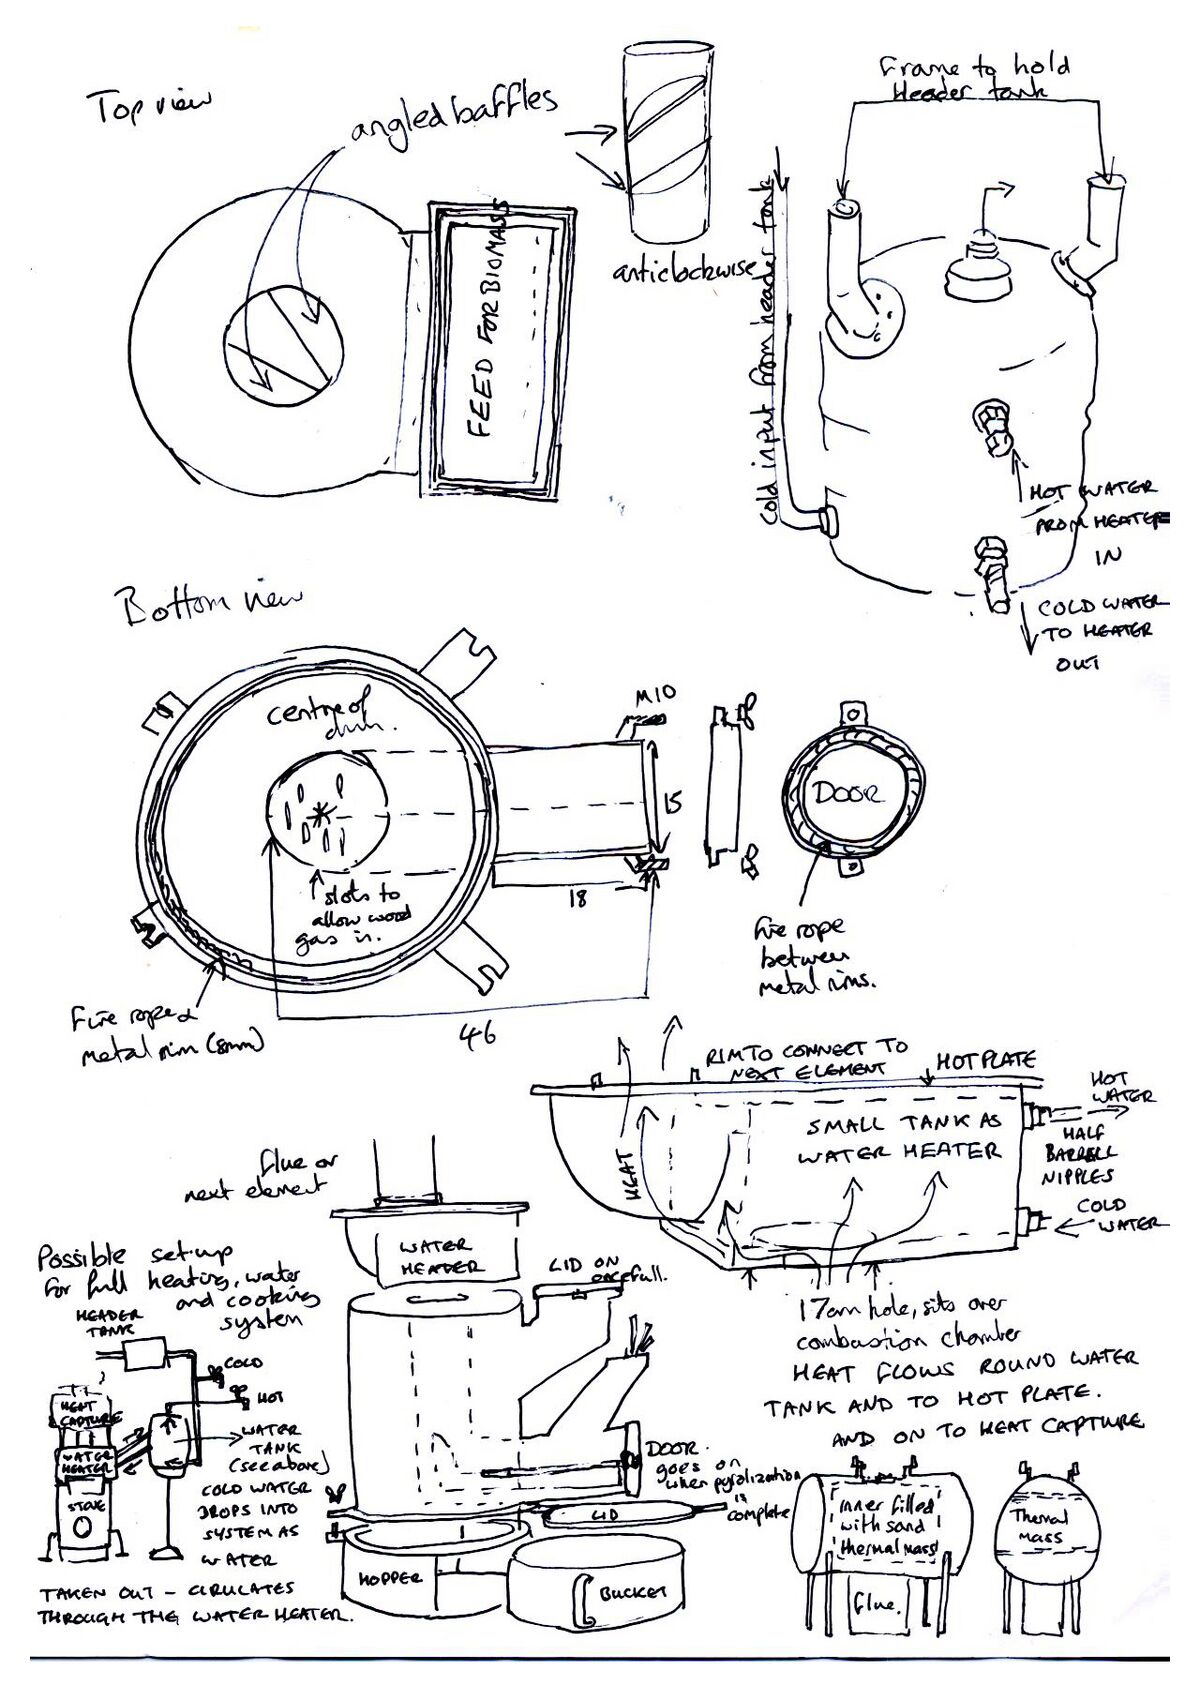 Top view
angled baffles
FEED FOR BIOMASS
anticlockwise
Frame to hold
Header tank
Cold input from header tank
HOT WATER
FROM HEATER
IN
COLD WATER
TO HEATER
OUT
Bottom view
centre of
drum.
slots to
allow wood
gas in.
M10
15
18
46
DOOR
Fire rope
between
metal rims.
Fire rope &
metal rim (8mm)
RIM TO CONNECT TO
NEXT ELEMENT
HOT PLATE
HOT
WATER
SMALL TANK AS
WATER HEATER
HALF
BARRELL
NIPPLES
COLD
WATER
HEAT
17cm hole, sits over
combustion chamber
HEAT FLOWS ROUND WATER
TANK AND TO HOT PLATE.
AND ON TO HEAT CAPTURE
flue or
next element
WATER
HEATER
LID ON
once full.
DOOR.
goes on
when pyrolization
is
complete
LID
HOPPER
BUCKET
Possible set-up
for full heating, water
and cooking
system
HEADER
TANK
COLD
HOT
HEAT
CAPTURE
WATER
HEATER
STOVE
WATER
TANK
(see above)
COLD WATER
DROPS INTO
SYSTEM AS
WATER
TAKEN OUT - CIRULATES
THROUGH THE WATER HEATER.
inner filled
with sand
thermal mass
Flue.
Thermal
mass